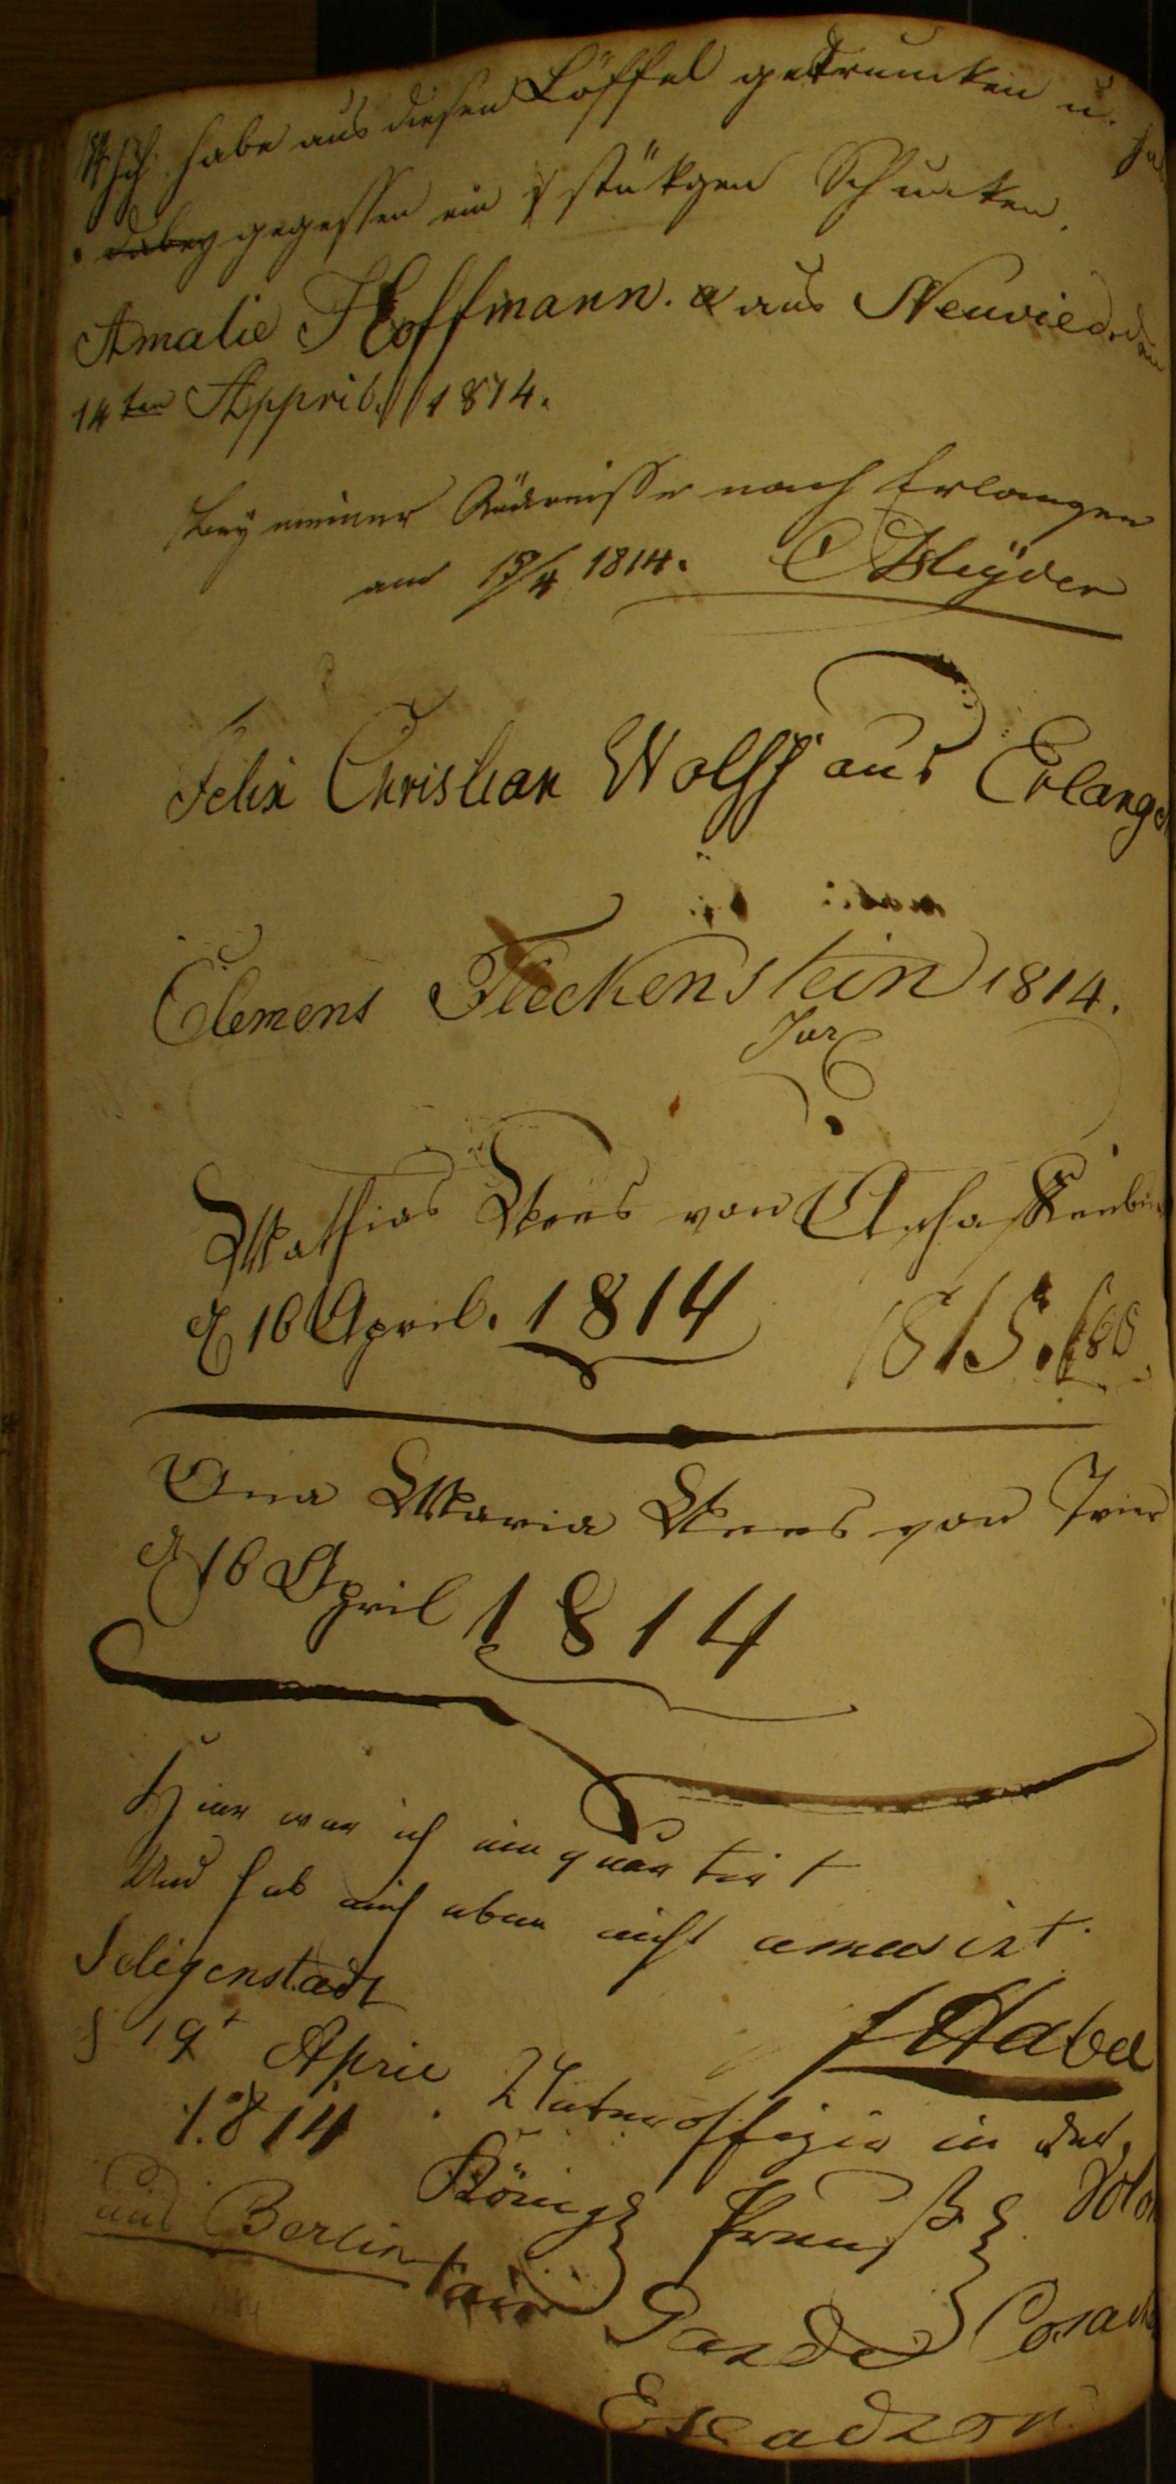 Ich habe aus diesen Löffel getruncken u.
dabey gegessen ein stükgen Schincken.
Amalie Hoffmann. aus Neuwied. den
14ten Apprill 1814.
Bey meiner Rückreise nach Erlangen
am 15/4 1814. C
Felix Christian Wolff aus Erlangen
Clemens Fleckenstein 1814.
Jur
Mathias Kees von Aschaffenbu
d 16 April. 1814 1815.
Ana Maria Kees von Trier
d 16 April 1814
Hier war ich einquartirt
Und hab mich eben nicht amusirt
Seligenstadt
d 19t April
1814
Unteroffizier in der
Königl Preuß Volon
aus Berlin
Garde Cosack
Escadron